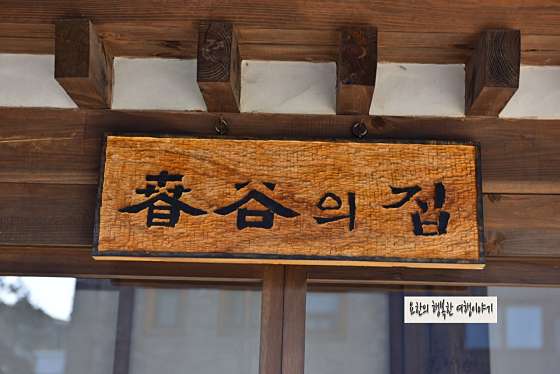 春谷의 집
요한의 행복한 여행이야기